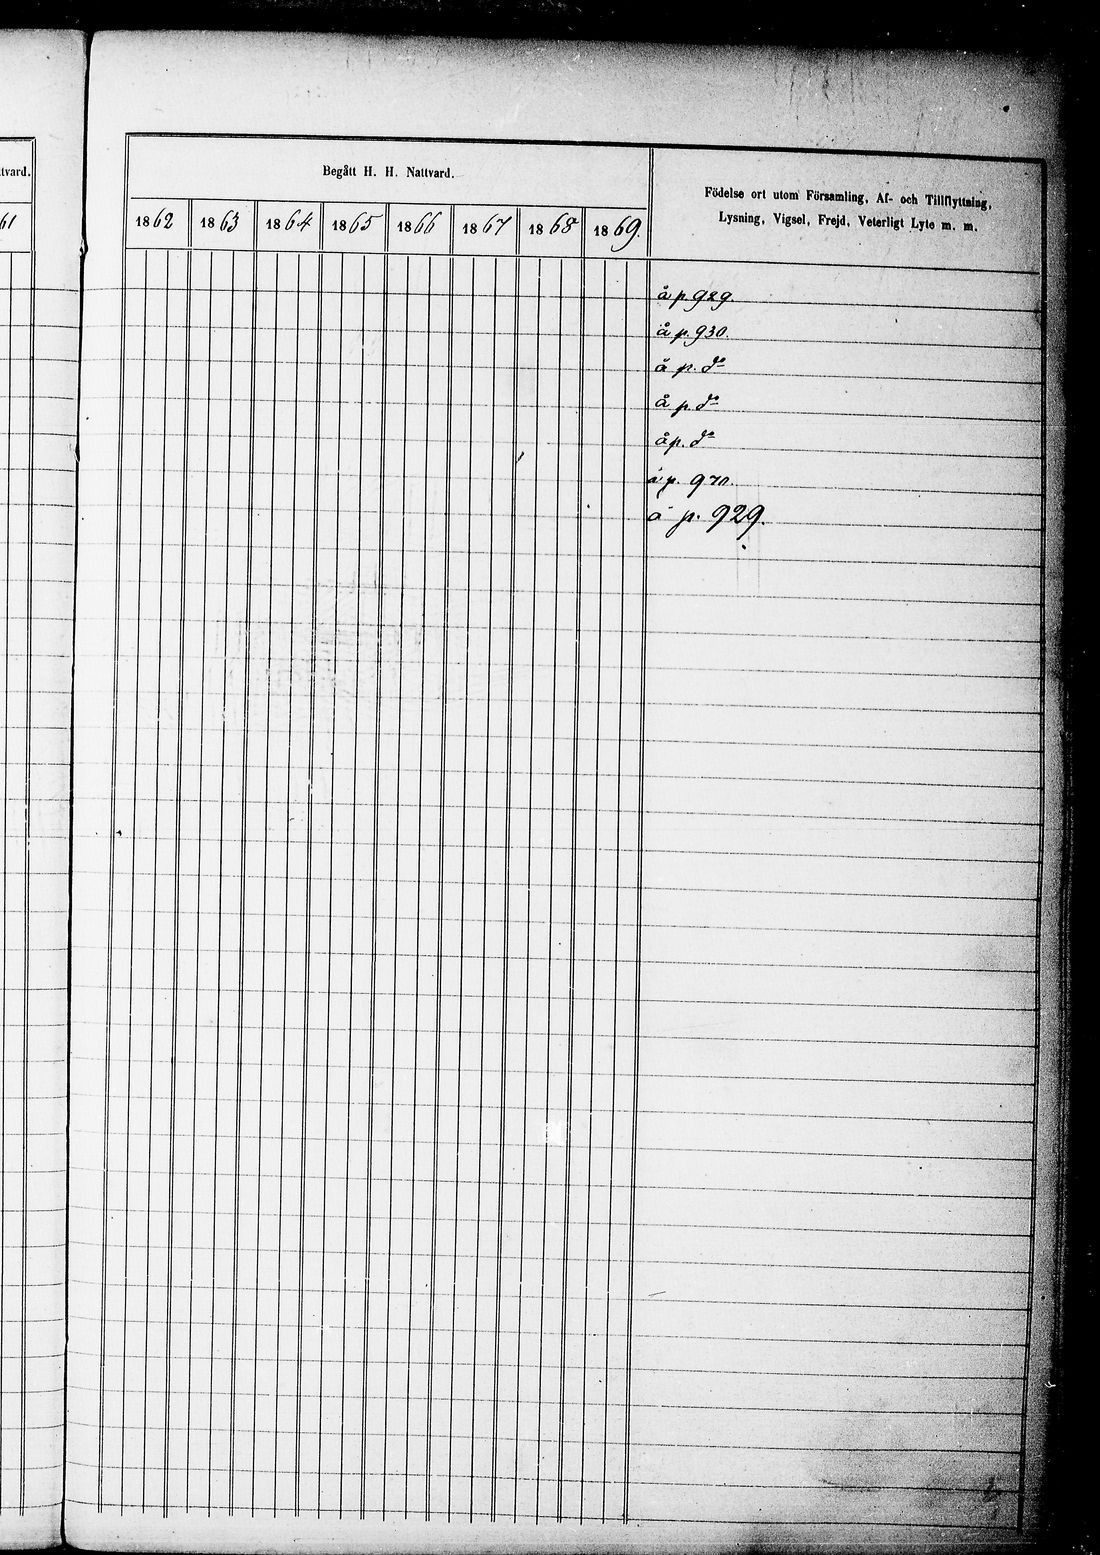 ttvard.
61
Begått H. H. Nattvard.
1862 1863 1864 1865 1866 1867 1868 1869.
Födelse ort utom Församling, Af- och Tillflyttning,
Lysning, Vigsel, Frejd, Veterligt Lyte m. m.
å p. 929.
å p. 930.
å p. do
å p. do
å p. do
å p.
å p. 929.